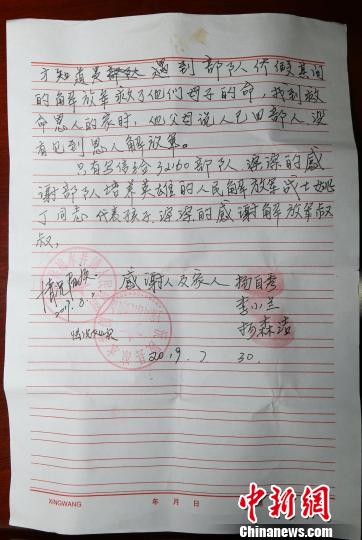 才知道是部队 遇到部队休假其间
的解放军救了他们母子的命，找到救
命恩人的家时，他父母说人已回部人，没
有见到恩人解放军。
只有写信给32160部队，深深的感
谢部队培养英雄的人民解放军战士姚
丁同志，代表孩子，深深的感谢解放军叔
叔，
感谢人及家人 杨自秀
情况属实
李小兰
杨森洁
情况属实
2019. 7 30.
XINGWANG
年 月 日
中新网
Chinanews.com